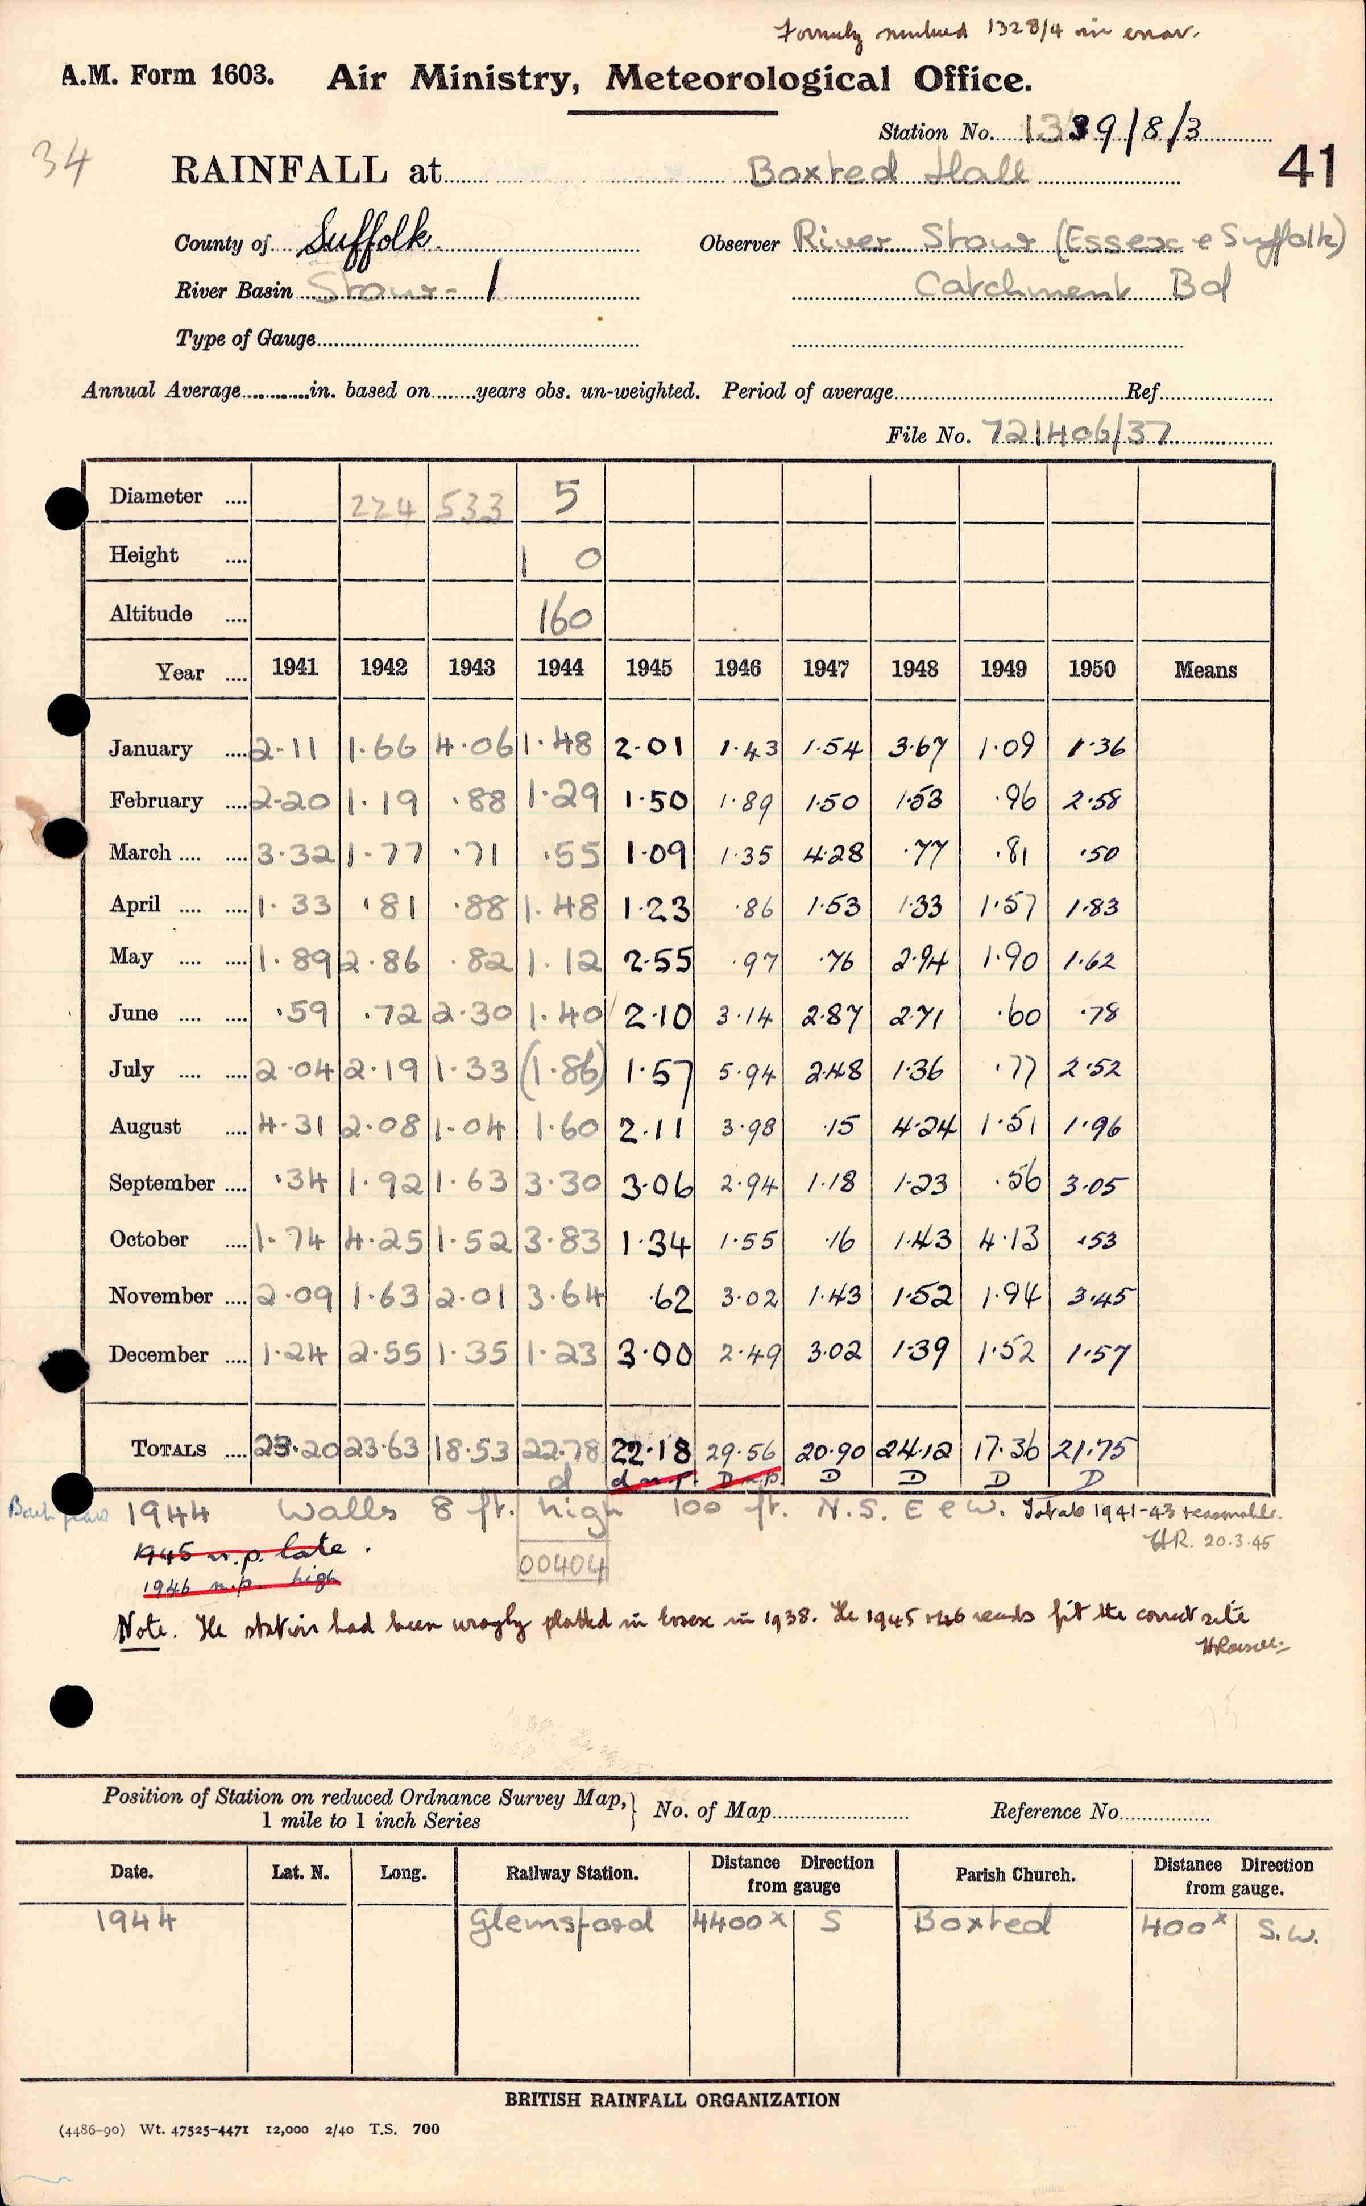 Formerly numbered 1328/4 in error.
A.M. Form 1603. Air Ministry, Meteorological Office.
Station No. 1339/8/3
34
41
RAINFALL at Boxted Hall
County of Suffolk Observer River Stour (Essex & Suffolk)
River Basin Stour - 1 Catchment Bd
Type of Gauge
Annual Average in. based on years obs. un-weighted. Period of average Ref.
File No. 721406/37
Diameter 224 533 5
Height 1 0
Altitude 160
Year 1941 1942 1943 1944 1945 1946 1947 1948 1949 1950 Means
January 2.11 1.66 4.06 1.48 2.01 1.43 1.54 3.67 1.09 1.36
February 2.20 1.19 .88 1.29 1.50 1.89 1.50 1.53 .96 2.58
March 3.32 1.77 .71 .55 1.09 1.35 4.28 .77 .81 .50
April 1.33 .81 .88 1.48 1.23 .86 1.53 1.33 1.57 1.83
May 1.89 2.86 .82 1.12 2.55 .97 .76 2.94 1.90 1.62
June .59 .72 2.30 1.40 2.10 3.14 2.87 2.71 .60 .78
July 2.04 2.19 1.33 (1.86) 1.57 5.94 2.48 1.36 .77 2.52
August 4.31 2.08 1.04 1.60 2.11 3.98 .15 4.24 1.51 1.96
September .34 1.92 1.63 3.30 3.06 2.94 1.18 1.23 .56 3.05
October 1.74 4.25 1.52 3.83 1.34 1.55 .16 1.43 4.13 .53
November 2.09 1.63 2.01 3.64 .62 3.02 1.43 1.52 1.94 3.45
December 1.24 2.55 1.35 1.23 3.00 2.49 3.02 1.39 1.52 1.57
TOTALS 23.20 23.63 18.53 22.78 22.18 29.56 20.90 24.12 17.36 21.75
d d n.p. D n.p. D D D D
1944 Walls 8 ft. high 100 ft. N.S. E & W. Totals 1941-43 reasonable.
HR. 20.3.45
1945 n.p. late.
00404
1946 n.p. high
Note. The station had been wrongly plotted in Essex in 1938. The 1945 & 46 records fit the correct site
Position of Station on reduced Ordnance Survey Map,
1 mile to 1 inch Series } No. of Map Reference No.
Date. Lat. N. Long. Railway Station. Distance Direction from gauge Parish Church. Distance Direction from gauge.
1944 Glemsford 4400x S Boxted 400x S.W.
BRITISH RAINFALL ORGANIZATION
(4486-90) Wt. 47525-4471 12,000 2/40 T.S. 700